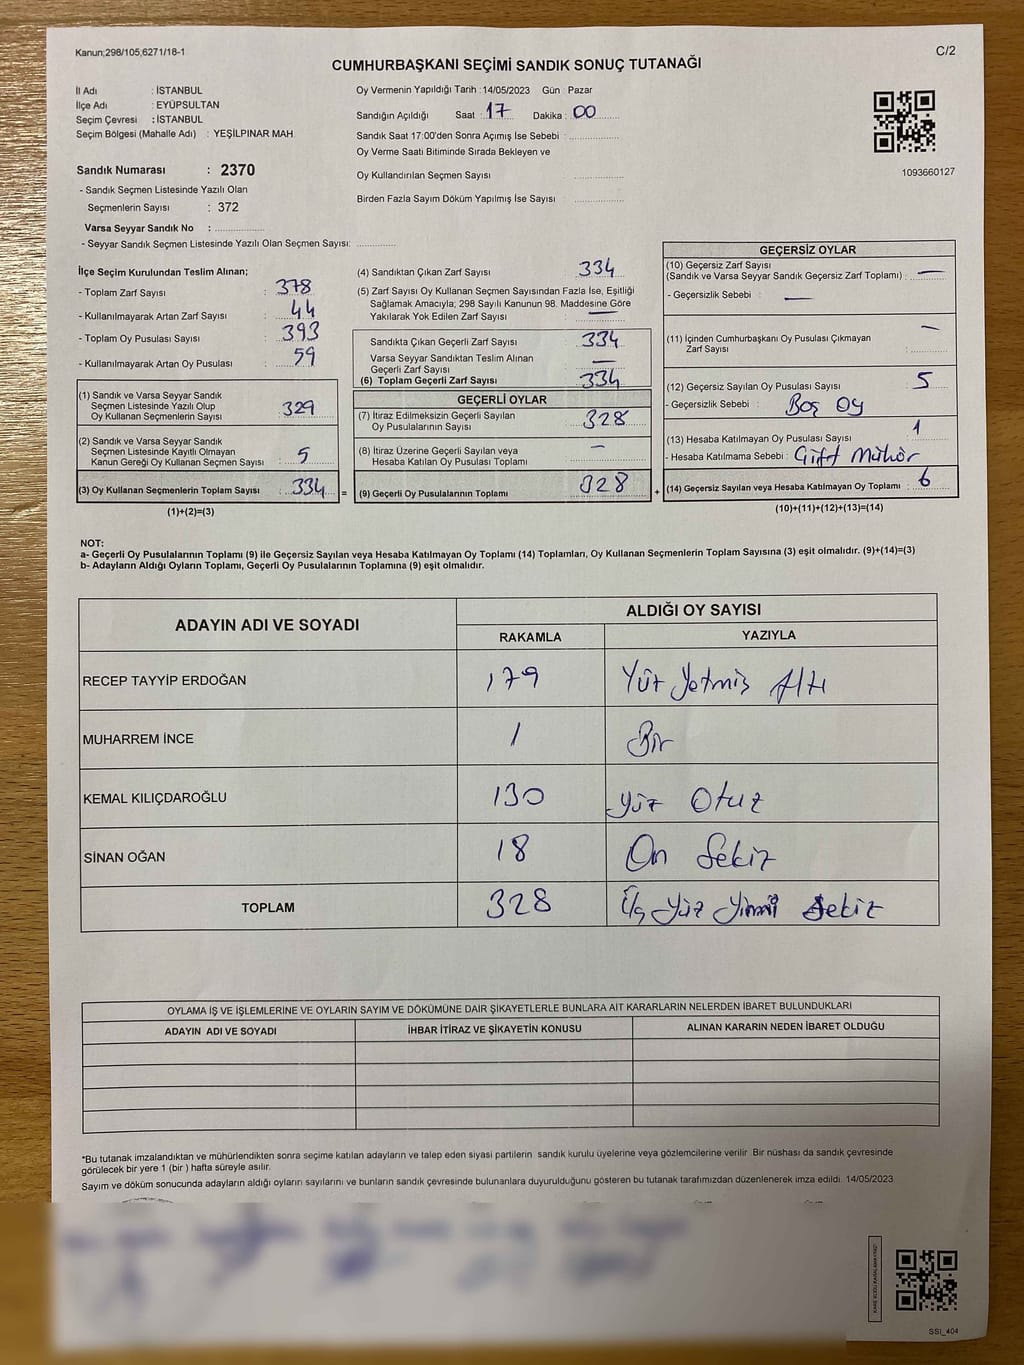 Kanun;298/105,6271/18-1
C/2
CUMHURBAŞKANI SEÇİMİ SANDIK SONUÇ TUTANAĞI
İl Adı : İSTANBUL
İlçe Adı : EYÜPSULTAN
Seçim Çevresi : İSTANBUL
Seçim Bölgesi (Mahalle Adı) : YEŞİLPINAR MAH.
Oy Vermenin Yapıldığı Tarih : 14/05/2023 Gün : Pazar
Sandığın Açıldığı Saat : 17 Dakika : 00
Sandık Saat 17:00'den Sonra Açımış İse Sebebi :
Oy Verme Saati Bitiminde Sırada Bekleyen ve
Oy Kullandırılan Seçmen Sayısı
Birden Fazla Sayım Döküm Yapılmış İse Sayısı
1093660127
Sandık Numarası : 2370
- Sandık Seçmen Listesinde Yazılı Olan
Seçmenlerin Sayısı : 372
Varsa Seyyar Sandık No :
- Seyyar Sandık Seçmen Listesinde Yazılı Olan Seçmen Sayısı:
İlçe Seçim Kurulundan Teslim Alınan;
- Toplam Zarf Sayısı : 378
- Kullanılmayarak Artan Zarf Sayısı : 44
- Toplam Oy Pusulası Sayısı : 393
- Kullanılmayarak Artan Oy Pusulası : 59
(1) Sandık ve Varsa Seyyar Sandık
Seçmen Listesinde Yazılı Olup
Oy Kullanan Seçmenlerin Sayısı : 329
(2) Sandık ve Varsa Seyyar Sandık
Seçmen Listesinde Kayıtlı Olmayan
Kanun Gereği Oy Kullanan Seçmen Sayısı : 5
(3) Oy Kullanan Seçmenlerin Toplam Sayısı : 334 =
(1)+(2)=(3)
(4) Sandıktan Çıkan Zarf Sayısı : 334
(5) Zarf Sayısı Oy Kullanan Seçmen Sayısından Fazla İse, Eşitliği
Sağlamak Amacıyla; 298 Sayılı Kanunun 98. Maddesine Göre
Yakılarak Yok Edilen Zarf Sayısı : —
Sandıkta Çıkan Geçerli Zarf Sayısı : 334
Varsa Seyyar Sandıktan Teslim Alınan
Geçerli Zarf Sayısı : —
(6) Toplam Geçerli Zarf Sayısı : 334
GEÇERLİ OYLAR
(7) İtiraz Edilmeksizin Geçerli Sayılan
Oy Pusulalarının Sayısı : 328
(8) İtiraz Üzerine Geçerli Sayılan veya
Hesaba Katılan Oy Pusulası Toplamı : —
(9) Geçerli Oy Pusulalarının Toplamı : 328 +
GEÇERSİZ OYLAR
(10) Geçersiz Zarf Sayısı
(Sandık ve Varsa Seyyar Sandık Geçersiz Zarf Toplamı) : —
- Geçersizlik Sebebi : —
(11) İçinden Cumhurbaşkanı Oy Pusulası Çıkmayan
Zarf Sayısı : —
(12) Geçersiz Sayılan Oy Pusulası Sayısı : 5
- Geçersizlik Sebebi : Boş oy
(13) Hesaba Katılmayan Oy Pusulası Sayısı : 1
- Hesaba Katılmama Sebebi : Çift Mühür
(14) Geçersiz Sayılan veya Hesaba Katılmayan Oy Toplamı : 6
(10)+(11)+(12)+(13)=(14)
NOT:
a- Geçerli Oy Pusulalarının Toplamı (9) ile Geçersiz Sayılan veya Hesaba Katılmayan Oy Toplamı (14) Toplamları, Oy Kullanan Seçmenlerin Toplam Sayısına (3) eşit olmalıdır. (9)+(14)=(3)
b- Adayların Aldığı Oyların Toplamı, Geçerli Oy Pusulalarının Toplamına (9) eşit olmalıdır.
ADAYIN ADI VE SOYADI
ALDIĞI OY SAYISI
RAKAMLA YAZIYLA
RECEP TAYYİP ERDOĞAN 179 Yüz Yetmiş Altı
MUHARREM İNCE 1 Bir
KEMAL KILIÇDAROĞLU 130 Yüz Otuz
SİNAN OĞAN 18 On Sekiz
TOPLAM 328 Üç Yüz Yirmi Sekiz
OYLAMA İŞ VE İŞLEMLERİNE VE OYLARIN SAYIM VE DÖKÜMÜNE DAİR ŞİKAYETLERLE BUNLARA AİT KARARLARIN NELERDEN İBARET BULUNDUKLARI
ADAYIN ADI VE SOYADI İHBAR İTİRAZ VE ŞİKAYETİN KONUSU ALINAN KARARIN NEDEN İBARET OLDUĞU
*Bu tutanak imzalandıktan ve mühürlendikten sonra seçime katılan adayların ve talep eden siyasi partilerin sandık kurulu üyelerine veya gözlemcilerine verilir. Bir nüshası da sandık çevresinde
görülecek bir yere 1 (bir ) hafta süreyle asılır.
Sayım ve döküm sonucunda adayların aldığı oyların sayılarını ve bunların sandık çevresinde bulunanlara duyurulduğunu gösteren bu tutanak tarafımızdan düzenlenerek imza edildi. 14/05/2023
SSI_404